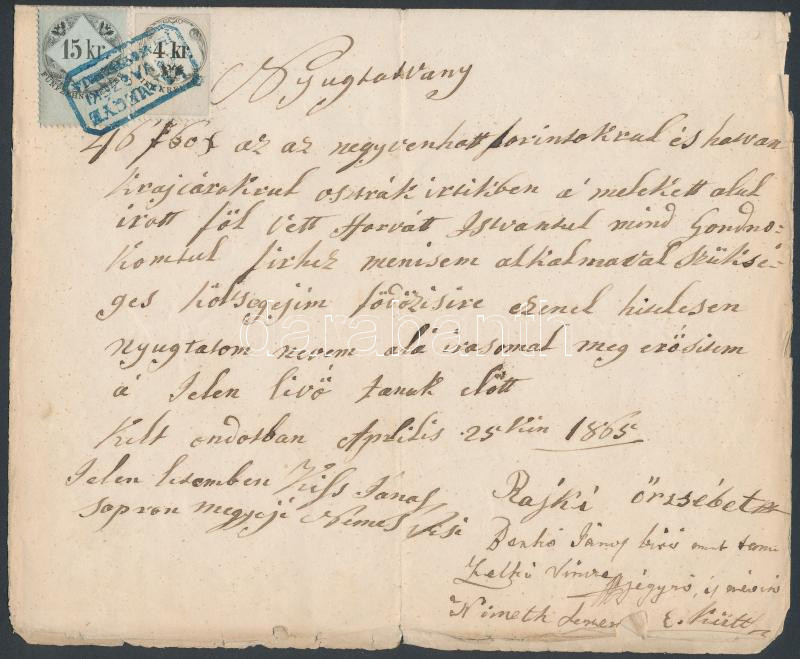 15 kr.
4 kr.
Nyugtatvany
46 f 60 x az az negyvenhatt forintokrul és hatvan
krajcárokrul osztrák irtikben á melekett alul
irott föl vett Horvát Istvantul mind Gondno-
komtul firhez menisem alkalmaval Szüksé-
ges költsegejim födözisire ezenel hitelesen
nyugtatom nevem alá irasomal meg erösitem
á Jelen livö tanuk elött
Kelt ondotban Aprilis 25 kin 1865
Jelen letemben Kiss Janos
sopron megyeji Nemes
Rajki örzsébet
Benkö János biró mint tanu
Zelki Vincze
Németh
darabanth